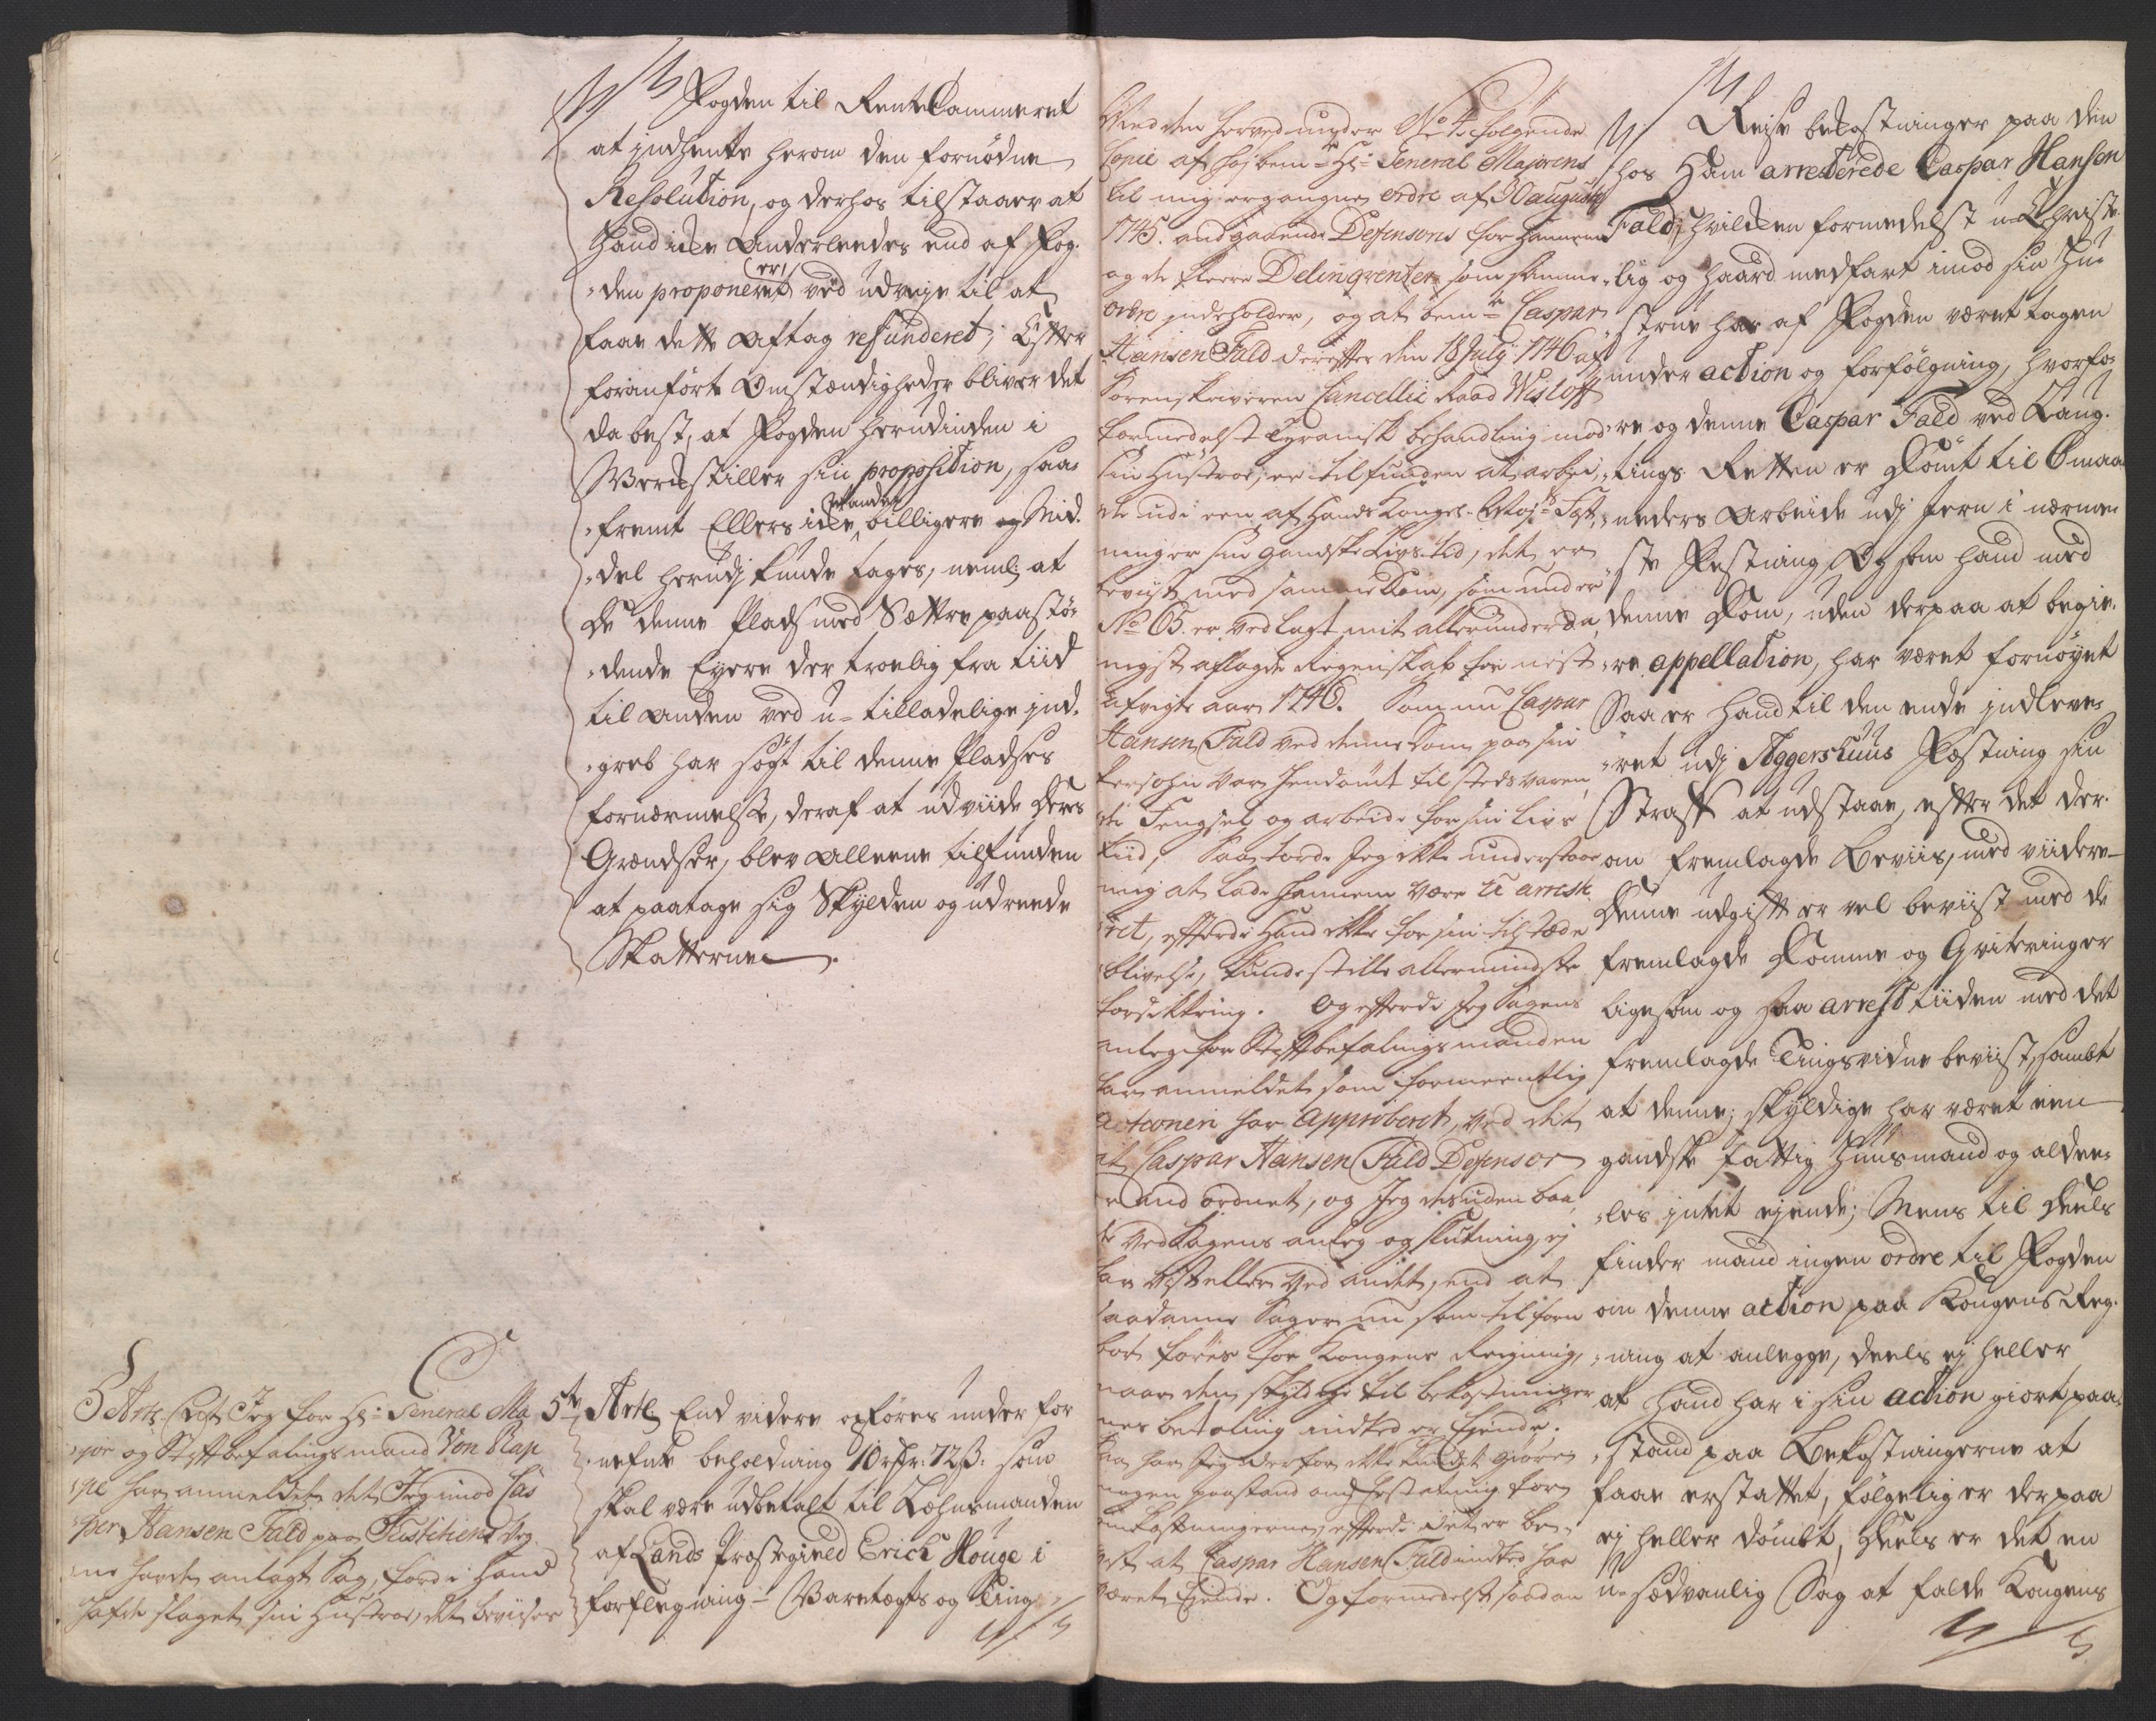 Fogden til RenteCammeret
at indhente herom den fornødne
Resolution, og derhos tilstaaer at
Hand icke anderleedes end af Fog-
den proponeret er, ved udveje til at
faae dette aftag refunderet; Efter
foranførte Omstændigheder bliver det
da best, at Fogden herudinden i
Verck stiller sin proposition, saa-
fremt Ellers icke andre billigere Mid-
del herudj kunde tages, neml: at
De denne Plads med Sættre paastø-
dende Eyere der troelig fra tiid
til anden ved u-tilladelige ind-
greb har søgt til denne Pladses
fornærmelse, deraf at udviide Deres
Grændser, blev alleene tilfunden
at paatage sig Skylden og udreede
Skatterne.
5 Art: At Jeg for Hr: General Ma-
jor og Stiftbefalingsmand Von Rap-
pe har anmeldet det Jeg imod Cas-
per Hansen Fald paa Justitiens Veg-
ne hafde anlagt Sag, fordi Hand
hafde slaget sin Hustroe, det beviises
5te Artl: End videre opføres under for
nefnte beholdning 10 rdr: 72 s: som
skal være udbetalt til Lehnsmanden
af Lands Præstegield Erich Houge i
forflegning- Varetægts og Tings-
Med den herved under No 4 følgende
Copie af høybemte Hr: General Majorens
til mig ergangne ordre af 30 augusti
1745. andgaaende Defensoris for hannem
og de fleere Delinqventer som samme
ordre indeholder, og at bemte Caspar
Hansen Fald derefter den 18 July 1746 af
Sorenskriveren Cancellie Raad Wisloff
formedelst tyranisk behandling mod
sin Hustroe, er tilfunden at arbei-
de udi een af Hands Kongel: Mays: Fæst-
ninger sin gandske Livs-tid, det er
beviist med samme Dom, som under
No 65. er vedlagt mit allerunderda-
nigst aflagde Regenskab for nest
afvigte aar 1746. Som nu Caspar
Hansen Fald ved denne Dom paa sin
Persohn var hendømt til stedsvaren-
de Fengsel og arbeide for sin Livs
tiid, Saa torde Jeg ikke understaae
mig at lade hannem være u-arreste-
ret, efterdi Hand ikke for sin tilstæde
blivelse, kunde stille allermindste
forsikkring. Og efterdi Jeg Sagens
anleg for Stiftbefalingsmanden
har anmeldet som formeentlig
actionen har approberet, ved det
at Caspar Hansen Fald Defensor
er and ordnet, og Jeg desuden baa-
de ved Sagens anleg og slutning, ej
har vist eller ved andet, end at
saadanne Sager nu som tilforn
bør føres for Kongens Reigning,
naar den skyldige til bekostninger
nes betaling indted er Ejende.
Saa har Jeg derfor ikke kundet giøre
nogen paastand om erstatning for
omkostningerne, efterdi det er be-
viist at Caspar Hansen Fald indted har
været Ejende. Og formedelst saadan
Reise bekostninger paa den
hos Ham arresterede Caspar Hansen
Fald; hvilcken formedelst u-Christe-
lig og haard medfart imod sin Hu-
strue har af Fogden været tagen
under action og forfølgning, hvorfo-
re og denne Caspar Fald ved Laug-
tings Retten er dømt til 6 maa-
neders Arbeide udj Jern i nærme-
ste Festning, Og som hand med
denne Dom, uden derpaa at begie-
re appellation, har været fornøyet
Saa er Hand til den ende indleve-
ret udj Aggershuus Fæstning sin
Straff at udstaae, efter det der-
om fremlagde Beviis, med viidere
Denne udgift er vel beviist med de
fremlagde Domme og Qviteringer
ligesom og saa arrest tiiden med det
fremlagde Tingsvidne beviist, sambt
at denne; skyldige har været een
gandske fattig Huusmand og aldee-
les intet ejende; Mens til Deels
finder mand ingen ordre til Fogden
om denne action paa Kongens Reg-
ning at anlegge, deels ej heller
at Hand har i sin action giort paa-
stand paa Bekostningerne at
faae erstattet, følgelig er derpaa
ej heller dømbt, Deels er det en
u-sædvanlig Sag at falde Kongens